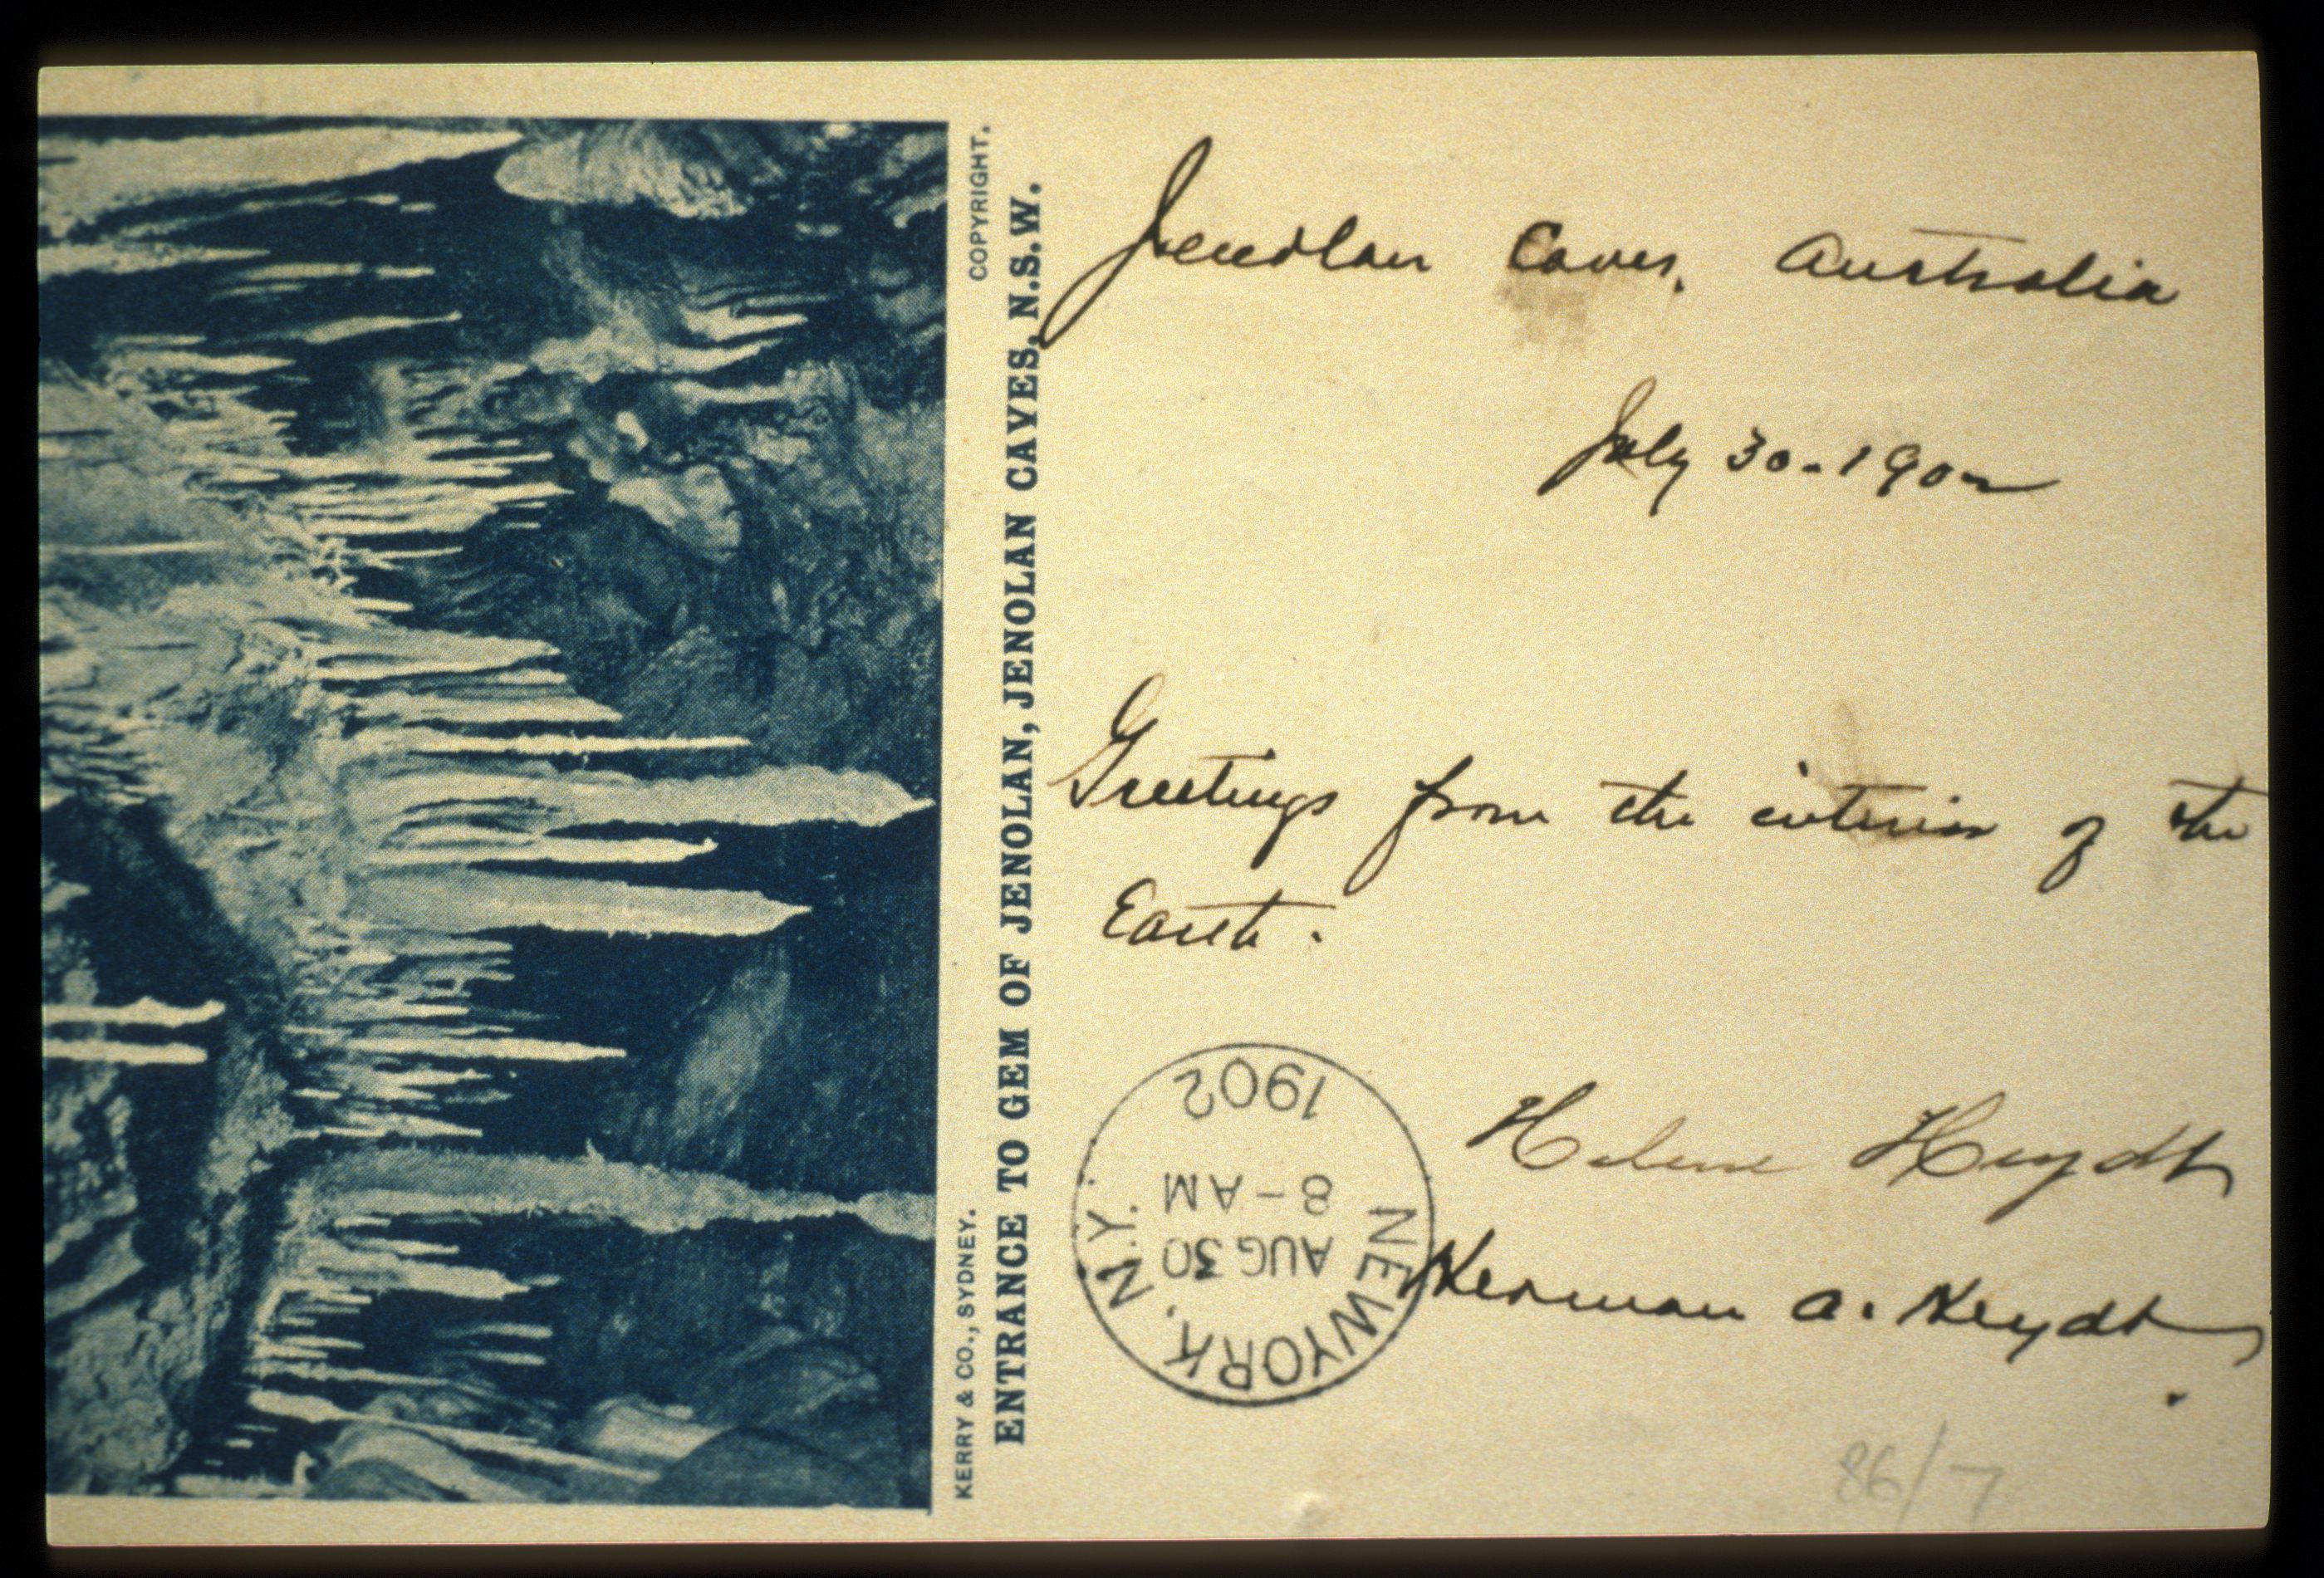 COPYRIGHT.
KERRY & CO., SYDNEY.
ENTRANCE TO GEM OF JENOLAN, JENOLAN CAVES, N.S.W.
Jenolan Caves, Australia
July 30-1902
Greetings from the interior of the
Earth.
Helene Heydt
Herman A. Heydt
NEW YORK, N.Y.
AUG 30
8-AM
1902
86/7